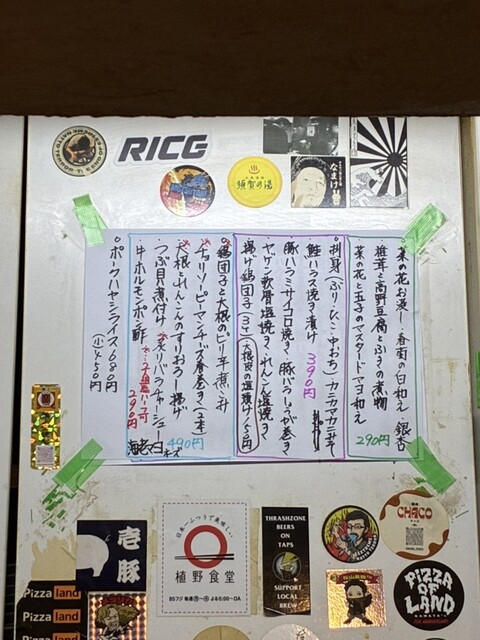 RICG
須賀の湯
なまけ
。菜の花お浸し・春菊の白和え・銀杏
椎茸と高野豆腐とふきの煮物
菜の花と玉子のマスタードマヨ和え
290円
。刺身(ぶり・ひこ中おち)カニカマカニみそ
鮭ハラス焼き漬け
390円
豚ハラミサイコロ焼き・豚バラしょうが巻き
・ヤゲン軟骨塩焼き・れんこん塩焼き
揚げ鶏団子(3ヶ)
大根皮の塩漬け150円
鶏団子と大根のピリ辛煮こみ
チョリソーピーマンチーズ春巻き(2本)
大根とれんこんのすりおろし揚げ
490円
つぶ貝煮付け・炙りバラチャーシュー
牛ホルモンポン酢
290円
海老マヨ
。ポークハヤシライス680円
(小)450円
壱豚
日本一ふつうで美味しい
植野食堂
BS7フジ 毎週
よる6:00〜OA
THRASHZONE
BEERS
ON
TAPS
SUPPORT
LOCAL
BREW
CHACO
Pizza land
Pizza land
Pizza land
PIZZA
OF
LAND